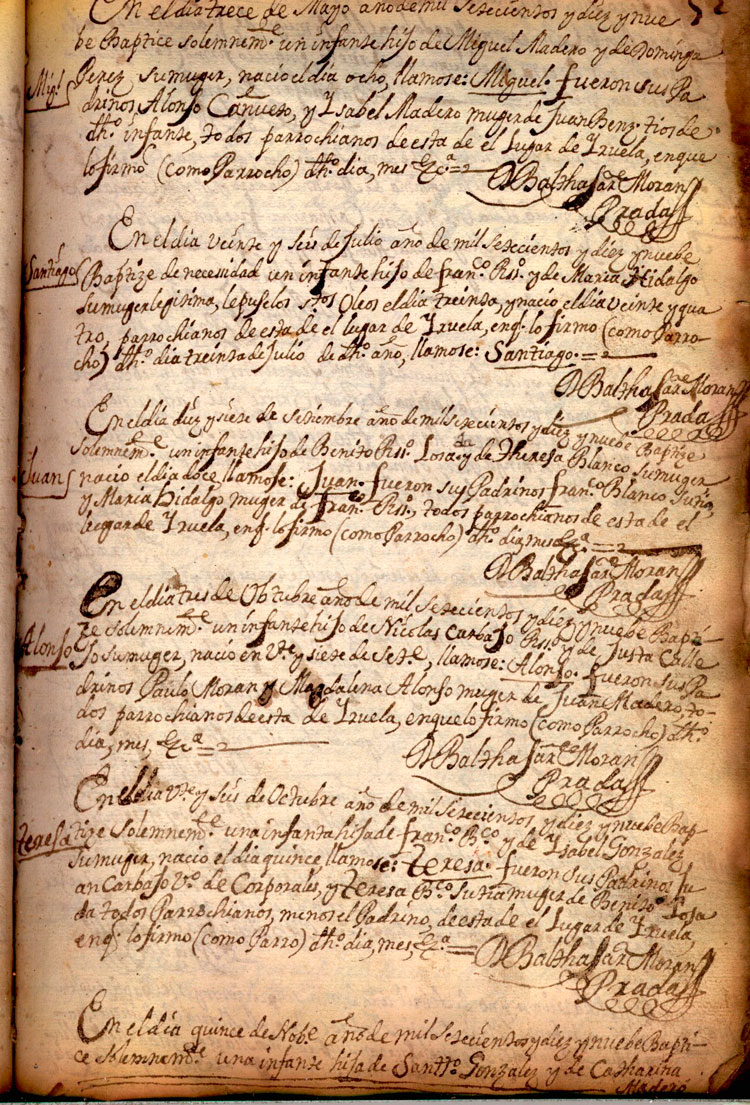 En el dia trece de Mayo año de mil setecientos y diez y nue
be Baptice solemnemte. un infante hijo de Miguel Madero y de Dominga
Migl.
Perez su muger, nacio el dia ocho, llamose: Miguel. fueron sus Pa
drinos Alonso Cañueto, y Ysabel Madero muger de Juan Benz. tios de
dho. infante, todos parrochianos de esta de el lugar de Yruela, en que
lo firmo (como Parrocho) dho. dia, mes &ca =
D Balthasar Moran
Prada
En el dia veinte y seis de Julio año de mil setecientos y diez y nuebe
Santiago
Baptize de necesidad un infante hijo de franco. Rso. y de Maria Hidalgo
su muger legitima, le puse los stos Oleos el dia treinta, y nacio el dia veinte y qua
tro, parrochianos de esta de el lugar de Yruela, enq. lo firmo (como Parro
cho) dho. dia treinta de Julio de dho. año, llamose: Santiago. =
D Balthasar Moran
Prada
En el dia diez y siete de Setiembre año de mil setecientos y diez y nuebe Baptize
solemnemte. un infante hijo de Benito Rso. Losada y de Theresa Blanco su muger
Juan
nacio el dia doce, llamose: Juan. fueron sus Padrinos franco. Blanco
y Maria Hidalgo muger de fran. Rso., todos parrochianos de esta de el
lugar de Yruela, enq. lo firmo (como Parrocho) dho. dia, mes &ca. =
D Balthasar Moran
Prada
En el dia tres de Obtubre año de mil setecientos y diez y nuebe Bapti
ze solemnemte. un infante hijo de Nicolas Carbajo Rso. y de Justa Calle
Alonso
jo su muger, nacio en Vte. y siete de Sete., llamose: Alonso. fueron sus Pa
drinos Paulo Moran y Magdalena Alonso muger de Juan Madero to
dos parrochianos de esta de Yruela, en que lo firmo (como Parrocho) dho.
dia, mes, &ca =
D Balthasar Moran
Prada
En el dia Vte. y seis de Octubre año de mil setecientos y diez y nuebe Bap
teresa
tize solemnemte. una infanta hija de franco. Bco. y de Ysabel Gonzalez
su muger, nacio el dia quince llamose: teresa. fueron sus Padrinos Ju
an Carbajo Vo. de Corporales, y teresa Bco. su tia muger de Benito Losa
da todos Parrochianos, menos el Padrino, de esta de el Lugar de Yruela,
enq. lo firmo (como Parro) dho. dia, mes, &ca. =
D Balthasar Moran
Prada
En el dia quince de Nobe. año de mil setecientos y diez y nuebe Bapti-
ce solemnemte. una infante hija de Santto. Gonzalez y de Catharina
Madero